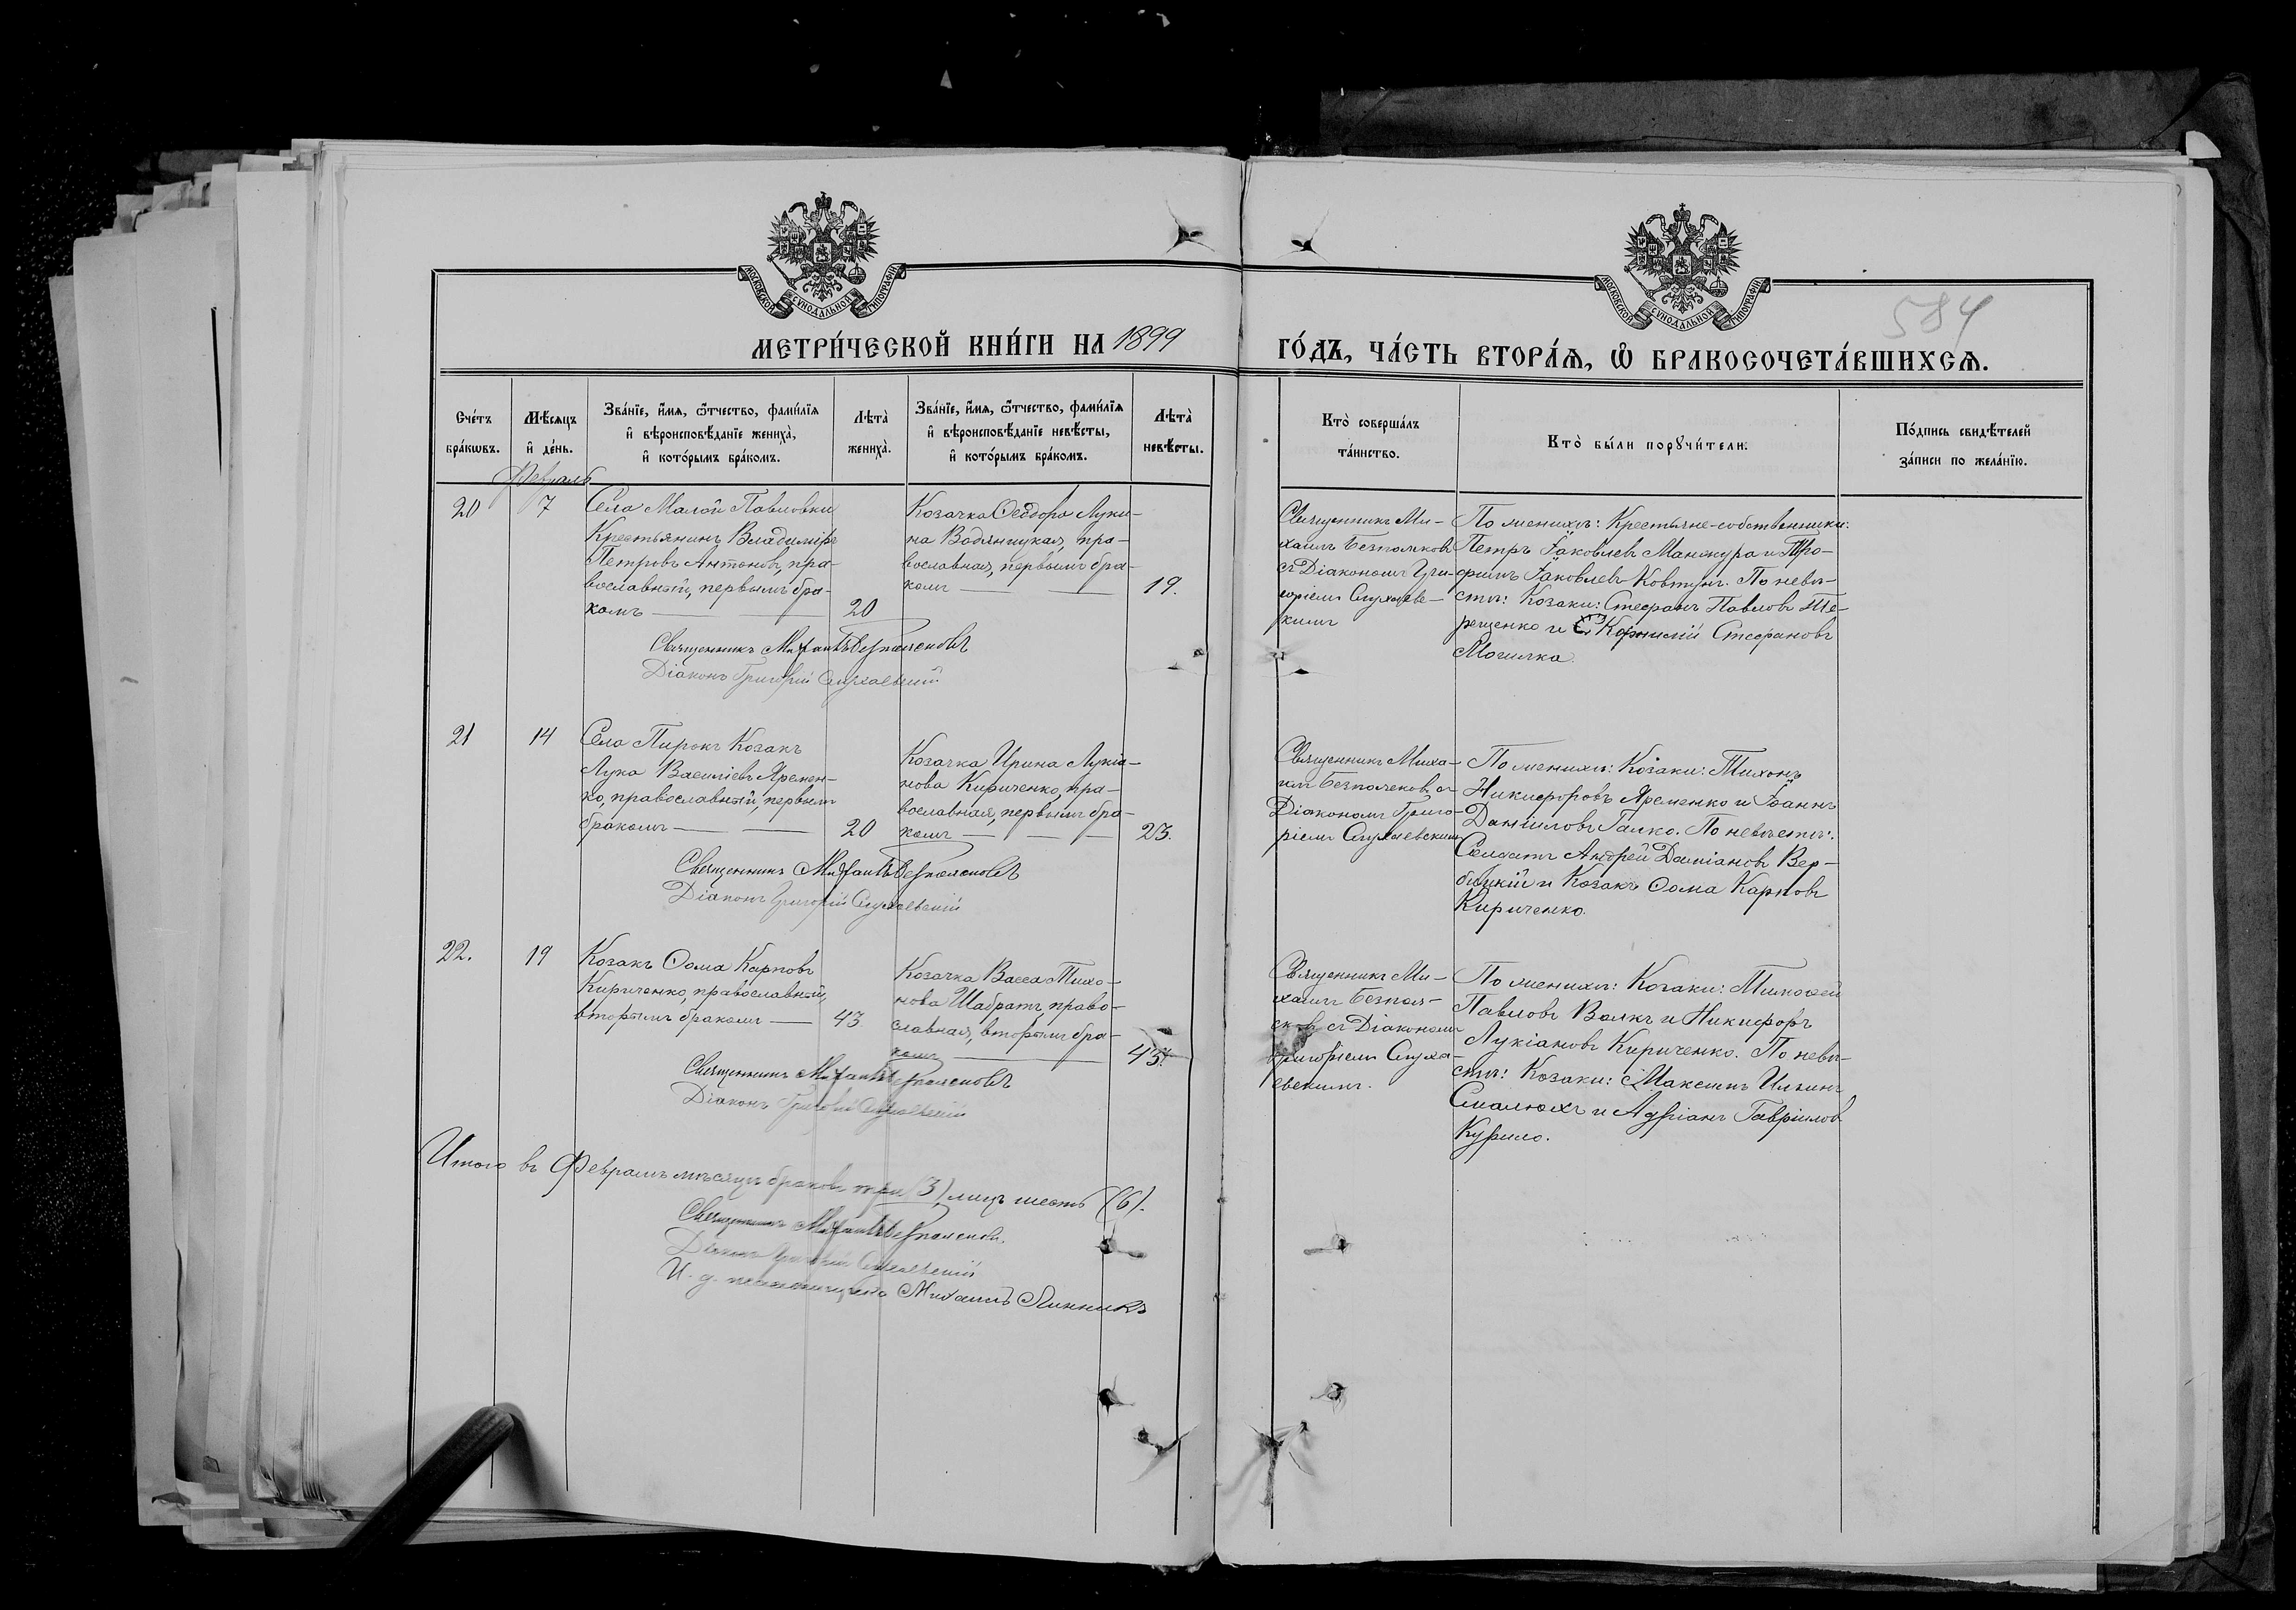 МОСКОВСКОЙ СѴНОДАЛЬНОЙ ТИПОГРАФІИ
МОСКОВСКОЙ СѴНОДАЛЬНОЙ ТИПОГРАФІИ
584
МЕТРИ́ЧЕСКОЙ КНИ́ГИ НА 1899
ГО́ДЪ, ЧА́СТЬ ВТОРА́Ѧ, Ѽ БРАКОСОЧЕТА́ВШИХСѦ.
Сче́тъ
бра́кѡвъ.
Мѣ́сѧцъ
и҆ де́нь.
Зва́нїе, и҆́мѧ, ѻ҆́тчество, фами́лїѧ
и҆ вѣроисповѣ́данїе жениха̀,
и҆ кото́рымъ бра́комъ.
Лѣта̀
жениха̀.
Зва́нїе, и҆́мѧ, ѻ҆́тчество, фами́лїѧ
и҆ вѣроисповѣ́данїе невѣ́сты,
и҆ кото́рымъ бра́комъ.
Лѣта̀
невѣ́сты.
Кто̀ соверша́лъ
та́инство.
Кто̀ бы́ли порꙋчи́тели.
По́дпись свидѣ́телей
за́писи по жела́нїю.
Февраль
20
7
Села Малой Павловки
Крестьянинъ Владиміръ
Петровъ Антоновъ, пра-
вославный, первымъ бра-
комъ
20
Козачка Ѳеодора Луки-
на Водяницкая, пра-
вославная, первымъ бра-
комъ
19.
Священникъ Ми-
хаилъ Безпоясковъ
съ Діакономъ Гри-
горіемъ Слухаевс-
кимъ
По женихѣ: Крестьяне-собственники:
Петръ Іаковлевъ Манжура и Тро-
фимъ Іаковлевъ Ковтунъ. По невѣ-
стѣ: Козаки: Стефанъ Павловъ Те-
рещенко и Корнилій Стефановъ
Могилка.
Священникъ Михаилъ Безпоясковъ
Діаконъ Григорій Слухаевскій
21
14
Села Пирокъ Козакъ
Лука Василіевъ Яремен-
ко, православный, первымъ
бракомъ
20
Козачка Ирина Лукіа-
нова Кириченко, пра-
вославная, первымъ бра-
комъ
23.
Священникъ Миха-
илъ Безпоясковъ съ
Діакономъ Григо-
ріемъ Слухаевскимъ
По женихѣ: Козаки: Тихонъ
Никифоровъ Яременко и Іоаннъ
Даніиловъ Галко. По невѣстѣ:
Солдатъ Андрей Даміановъ Вер-
бицкій и Козакъ Ѳома Карповъ
Кириченко.
Священникъ Михаилъ Безпоясковъ
Діаконъ Григорій Слухаевскій
22.
19
Козакъ Ѳома Карповъ
Кириченко, православный,
вторымъ бракомъ
43
Козачка Васса Тихо-
нова Шабратъ, право-
славная, вторымъ бра-
комъ
Священникъ Ми-
хаилъ Безпоя-
сковъ съ Діакономъ
Григоріемъ Слуха-
евскимъ.
По женихѣ: Козаки: Тимоѳей
Павловъ Валкъ и Никифоръ
Лукіановъ Кириченко. По невѣ-
стѣ: Козаки: Максимъ Ильинъ
Смалюхъ и Адріанъ Гавріиловъ
Курило.
Священникъ Михаилъ Безпоясковъ
Діаконъ Григорій Слухаевскій
Итого въ Февралѣ мѣсяцѣ браковъ три (3), лицъ шесть (6).
Священникъ Михаилъ Безпоясковъ.
Діаконъ Григорій Слухаевскій
И. д. псаломщика Михаилъ Линникъ